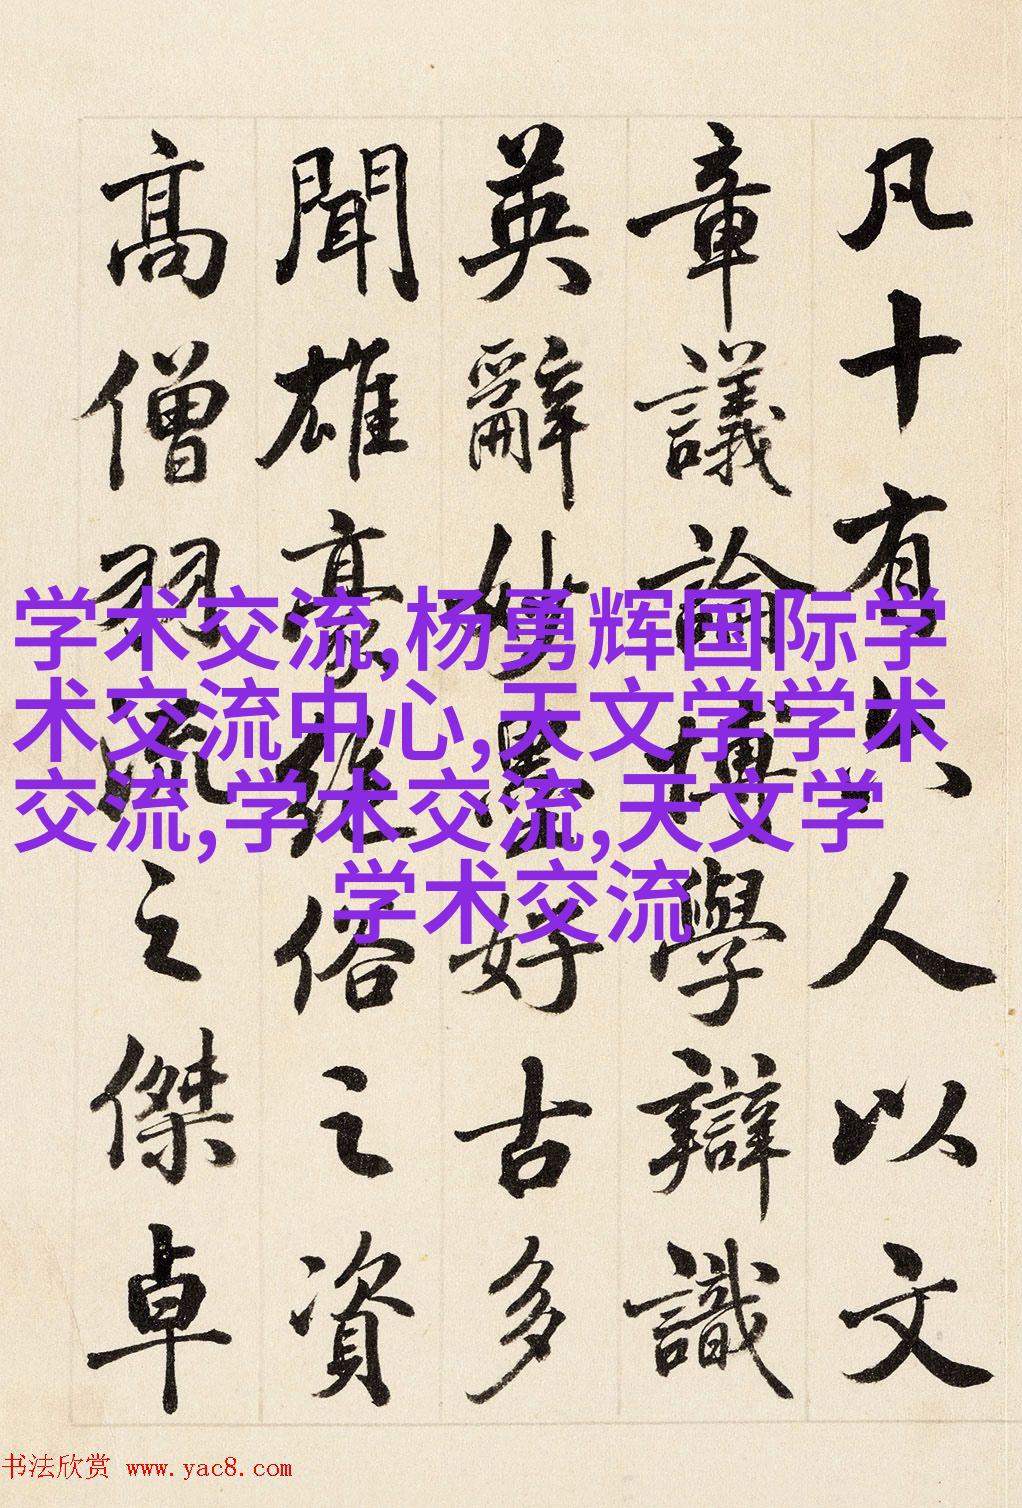 凡十有六人以文
章議論博學辯識
英辭妙墨好古多
聞雄豪絕俗之資
高僧羽流之傑卓
学术交流,杨勇辉国际学
术交流中心,天文学学术
交流,学术交流,天文学
学术交流
书法欣赏 www.yac8.com